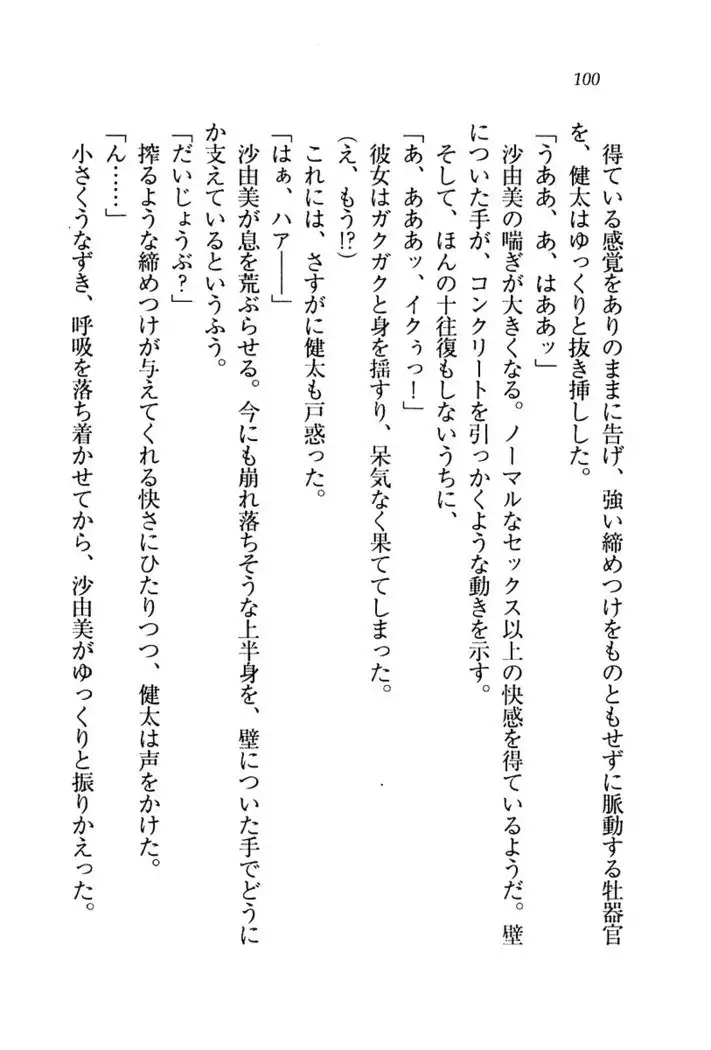 100
得ている感覚をありのままに告げ、強い締めつけをものともせずに脈動する牡器官
を、健太はゆっくりと抜き挿しした。
「うああ、あ、はああッ」
沙由美の喘ぎが大きくなる。ノーマルなセックス以上の快感を得ているようだ。壁
についた手が、コンクリートを引っかくような動きを示す。
そして、ほんの十往復もしないうちに、
「あ、あああッ、イクぅっ！」
彼女はガクガクと身を揺すり、呆気なく果ててしまった。
(え、もう!?)
これには、さすがに健太も戸惑った。
「はぁ、ハア――」
沙由美が息を荒ぶらせる。今にも崩れ落ちそうな上半身を、壁についた手でどうに
か支えているというふう。
「だいじょうぶ？」
搾るような締めつけが与えてくれる快さにひたりつつ、健太は声をかけた。
「ん……」
小さくうなずき、呼吸を落ち着かせてから、沙由美がゆっくりと振りかえった。